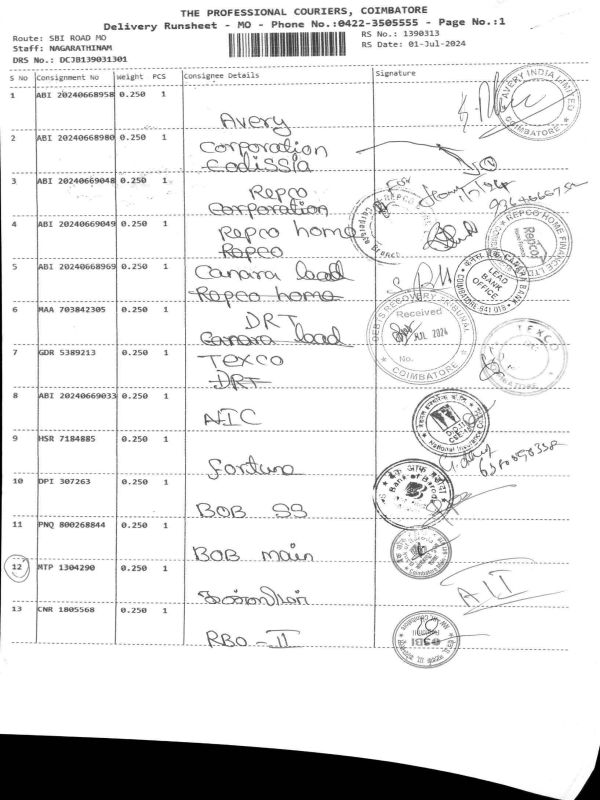 THE PROFESSIONAL COURIERS, COIMBATORE
Delivery Runsheet - MO - Phone No.:0422-3505555 - Page No.:1
Route: SBI ROAD MO
RS No.: 1390313
Staff: NAGARATHINAM
RS Date: 01-Jul-2024
DRS No.: DCJB139031301
S No Consignment No Weight PCS Consignee Details Signature
1 ABI 20240668958 0.250 1
Avery
AVERY INDIA LIMITED
COIMBATORE
2 ABI 20240668980 0.250 1
Corporation
Codissia
3 ABI 20240669048 0.250 1
Repco
Corporation
4 ABI 20240669049 0.250 1
Repco home
Repco
REPCO HOME FINANCE LTD
5 ABI 20240668969 1 0.250
Canara lead
Repco home
LEAD
BANK
OFFICE
CANARA BANK
COIMBATORE-641 018
6 MAA 703842305 0.250 1
DRT
Canara lead
DEBTS RECOVERY TRIBUNAL
Received
JUL 2024
No.
COIMBATORE
7 GDR 5389213 0.250 1
Texco
DRT
TEXCO
8 ABI 20240669033 0.250 1
NIC
National Insurance
9 HSR 7184885 0.250 1
Fortune
10 DPI 307263 0.250 1
BOB SS
Bank of Baroda
11 PNQ 800268844 0.250 1
BOB main
12 MTP 1304290 0.250 1
ALI
13 CNR 1805568 0.250 1
RBO - II
SBI